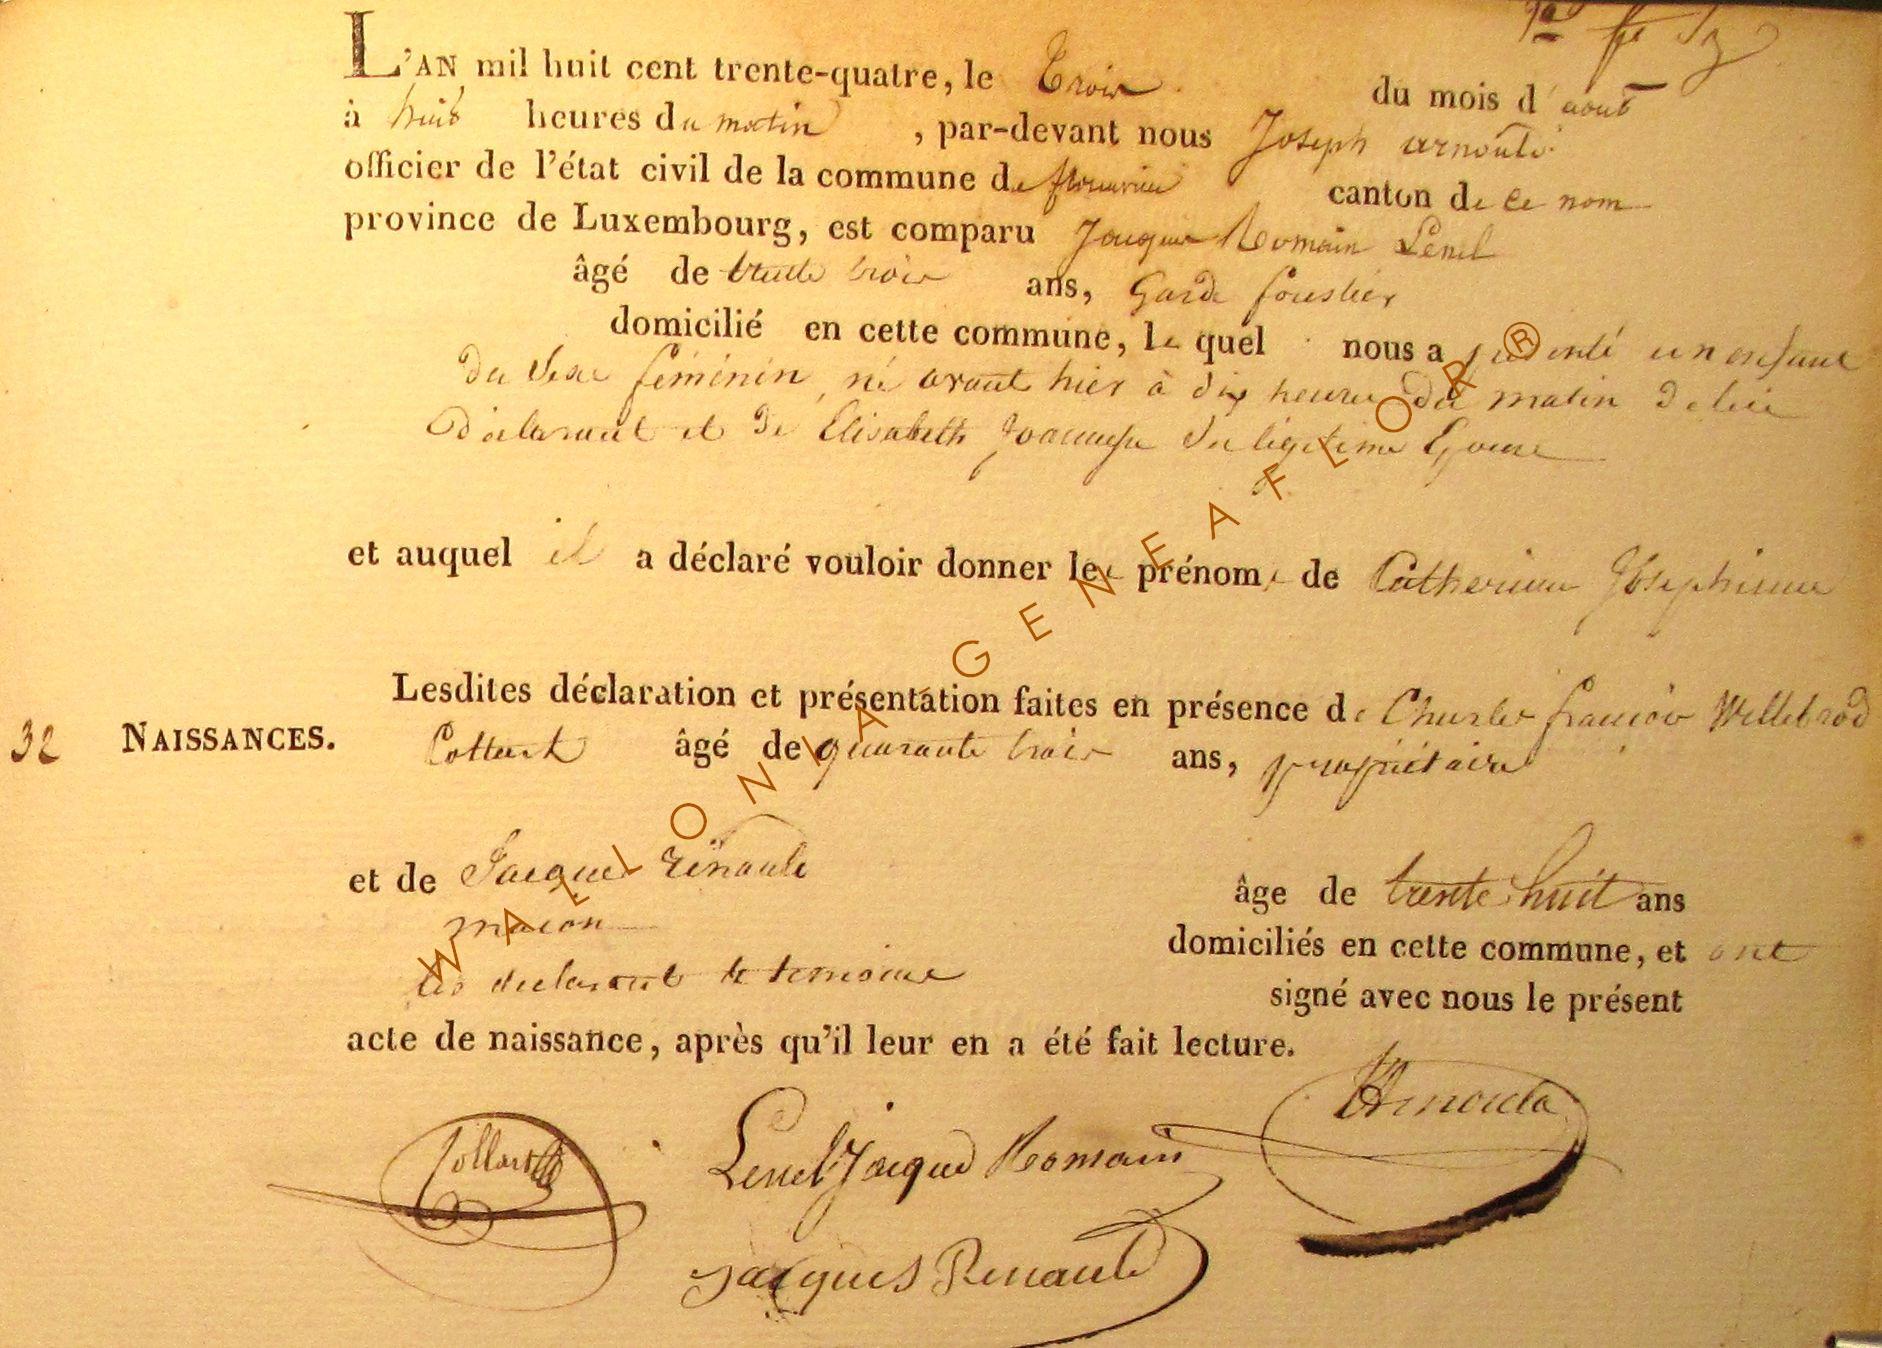 L'AN mil huit cent trente-quatre, le Trois du mois d'aout
à huit heures du matin, par-devant nous Joseph arnould
officier de l'état civil de la commune de florenville canton de ce nom
province de Luxembourg, est comparu Jacques Romain Lenel
âgé de trente trois ans, Garde forestier
domicilié en cette commune, le quel nous a présenté un enfant
du sexe féminin, né avant hier à dix heures du matin de lui
déclarant et de Elisabeth sa légitime Epouse
et auquel il a déclaré vouloir donner les prénoms de Catherine Joséphine
Lesdites déclaration et présentation faites en présence de Charles françois Willebrod
32 NAISSANCES.
Collard âgé de quarante trois ans, propriétaire
et de Jacques Renauld âge de trente huit ans
macon domiciliés en cette commune, et ont
les declarant et temoins signé avec nous le présent
acte de naissance, après qu'il leur en a été fait lecture.
Arnould
Collard Lenel Jacque Romain
Jacques Renauld
WALLONIA GENEAFLOR®